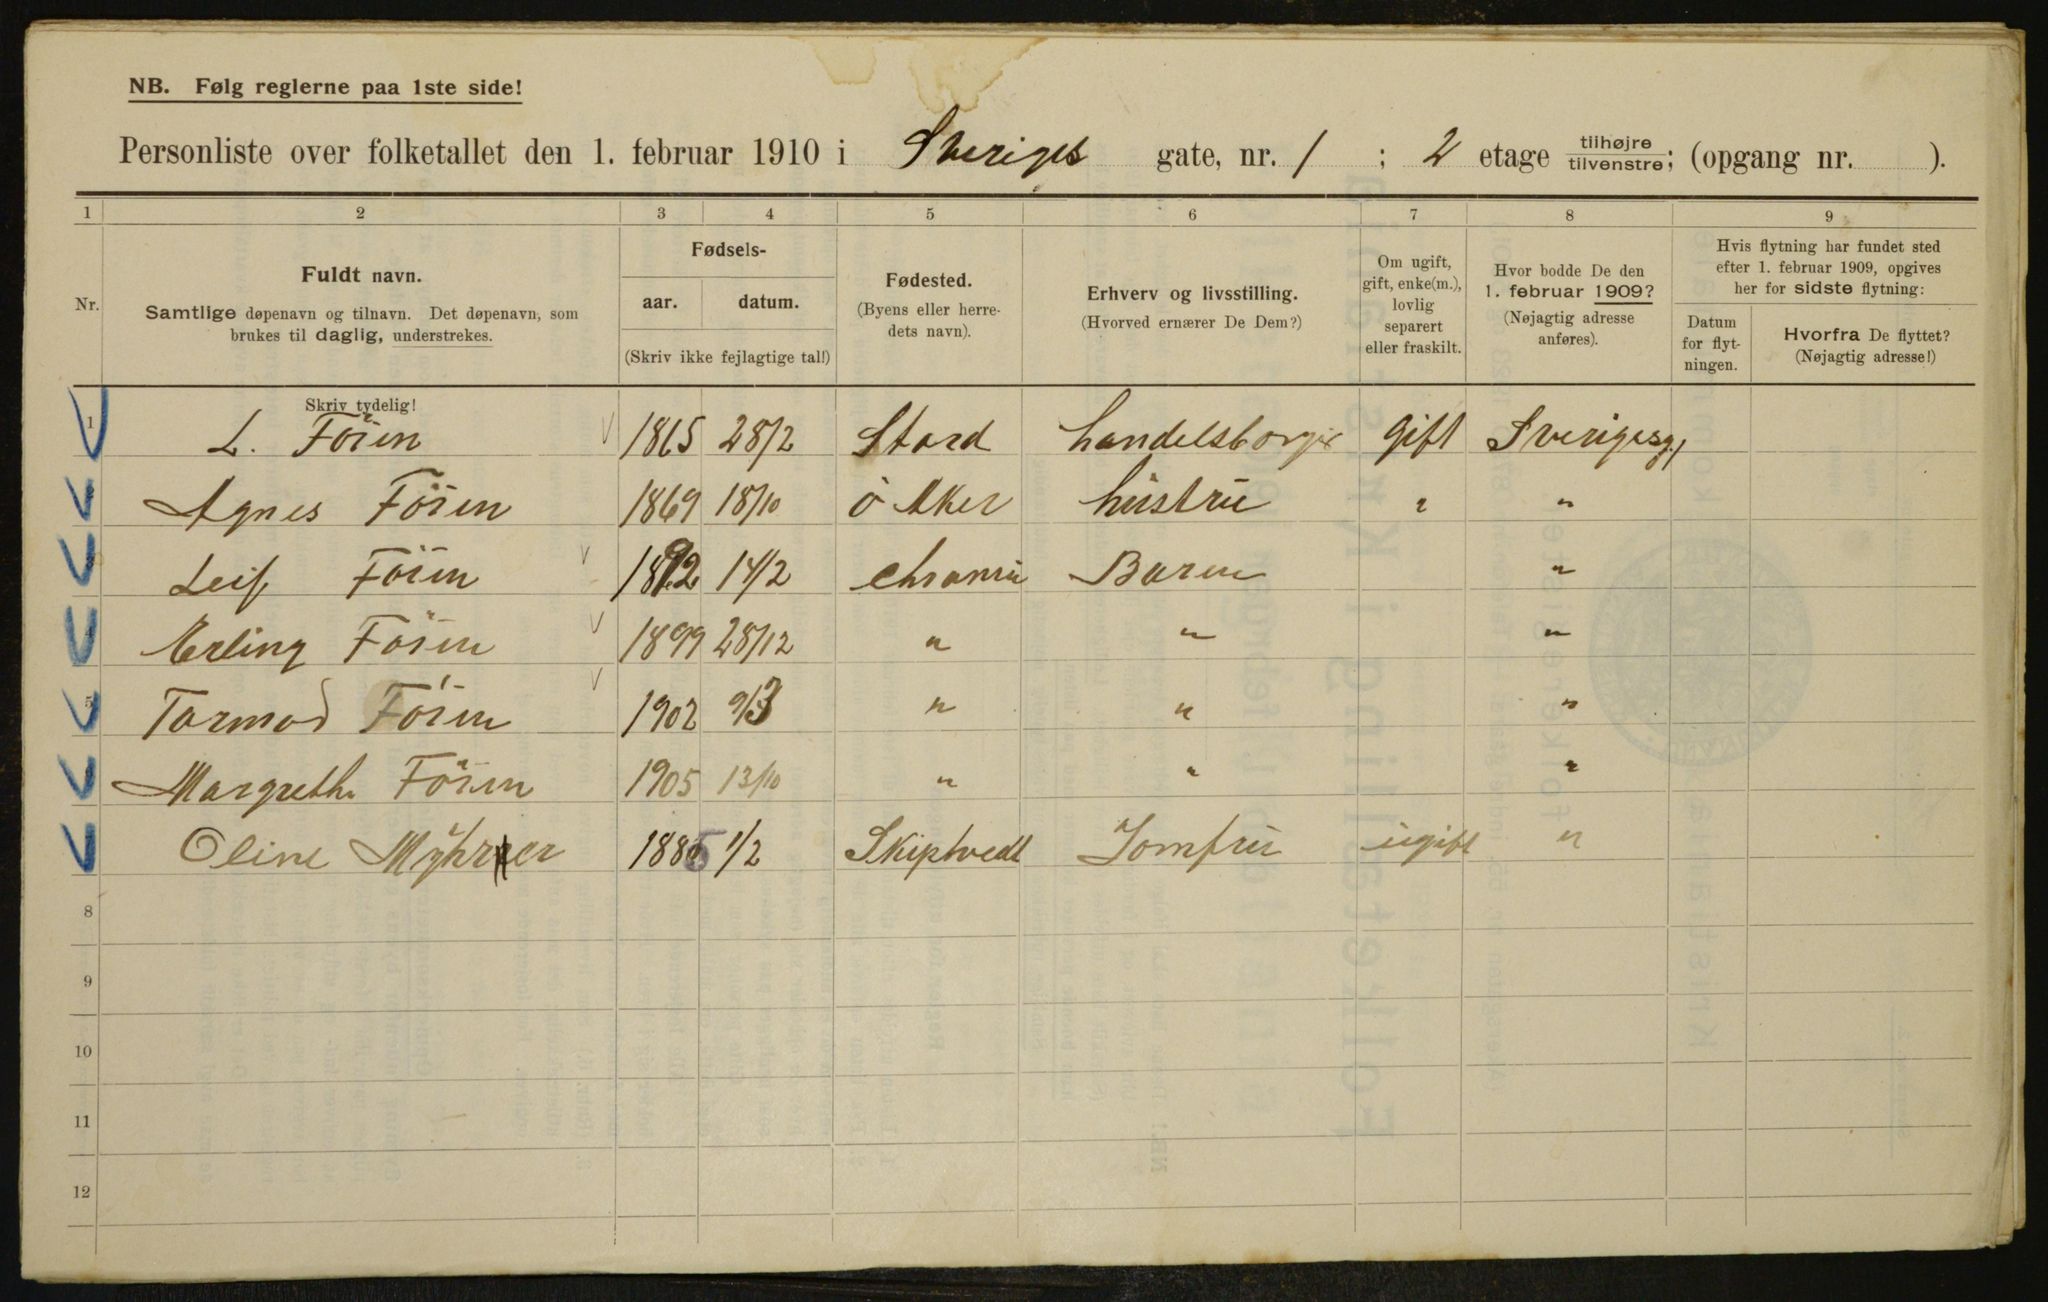 NB. Følg reglerne paa 1ste side!
Personliste over folketallet den 1. februar 1910 i Sveriges gate, nr. 1 ; 2 etage tilhøjre tilvenstre; (opgang nr. ).
1 2 3 4 5 6 7 8 9
Nr.
Fuldt navn.
Samtlige døpenavn og tilnavn. Det døpenavn, som
brukes til daglig, understrekes.
Fødsels-
aar. datum.
(Skriv ikke fejlagtige tal!)
Fødested.
(Byens eller herre-
dets navn).
Erhverv og livsstilling.
(Hvorved ernærer De Dem?)
Om ugift,
gift, enke(m.),
lovlig
separert
eller fraskilt.
Hvor bodde De den
1. februar 1909?
(Nøjagtig adresse
anføres).
Hvis flytning har fundet sted
efter 1. februar 1909, opgives
her for sidste flytning:
Datum
for flyt-
ningen.
Hvorfra De flyttet?
(Nøjagtig adresse!)
Skriv tydelig!
1 L. Föien 1865 28/2 Stord handelsborger gift Sverigesg. 1
2 Agnes Föien 1869 18/10 Ö Aker hustru " "
3 Leif Föien 1892 14/2 Chrania Barn "
4 Erling Föien 1899 28/12 " " "
5 Tormod Föien 1902 9/3 " " "
6 Margreth Föien 1905 13/10 " " "
7 Oline Myhrer 1885 1/2 Skiptvedt Jomfru ugift "
8
9
10
11
12